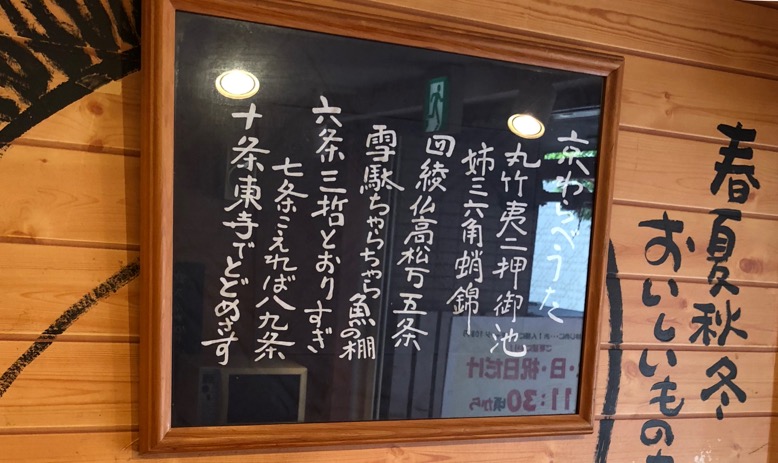 春夏秋冬
おいしいもの
京わらべうた
丸竹夷二押御池
姉三六角蛸錦
四綾仏高松万五条
雪駄ちゃらちゃら魚の棚
六条三哲とおりすぎ
七条こえれば八九条
十条東寺でとどめさす
・日・祝日だけ
11:30頃から